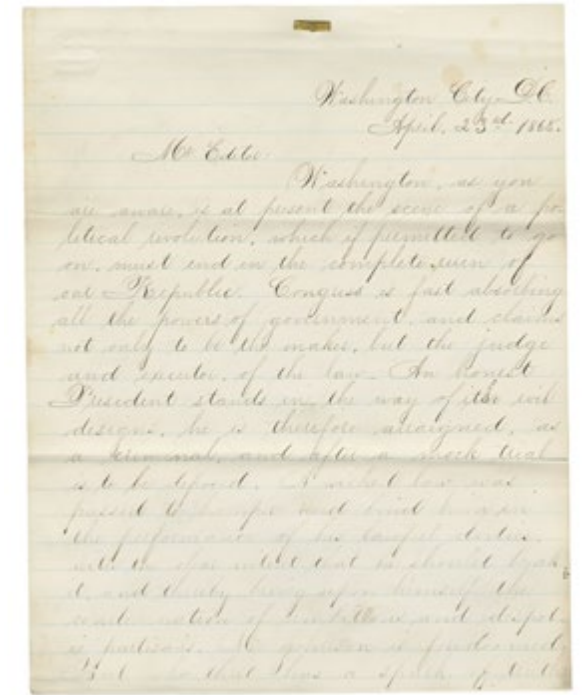 Washington City D.C.
April, 23rd. 1868.
Mr. Editor.
Washington, as you
are aware, is at present the scene of a po-
litical revolution, which if permitted to go
on, must end in the complete ruin of
our Republic. Congress is fast absorbing
all the powers of government, and claims
not only to be the maker, but the judge
and executor, of the law. An honest
President stands in the way of its evil
designs, he is therefore arraigned, as
a criminal, and after a mock trial
is to be deposed. A wicked law was
passed to and bind him in
the performance of his lawful duties,
with the intent that he should break
it, and thereby bring upon himself the
of and
partisans. is
that has a spark of